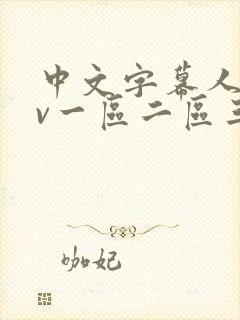 中文字幕人
v一區二區三
咖妃